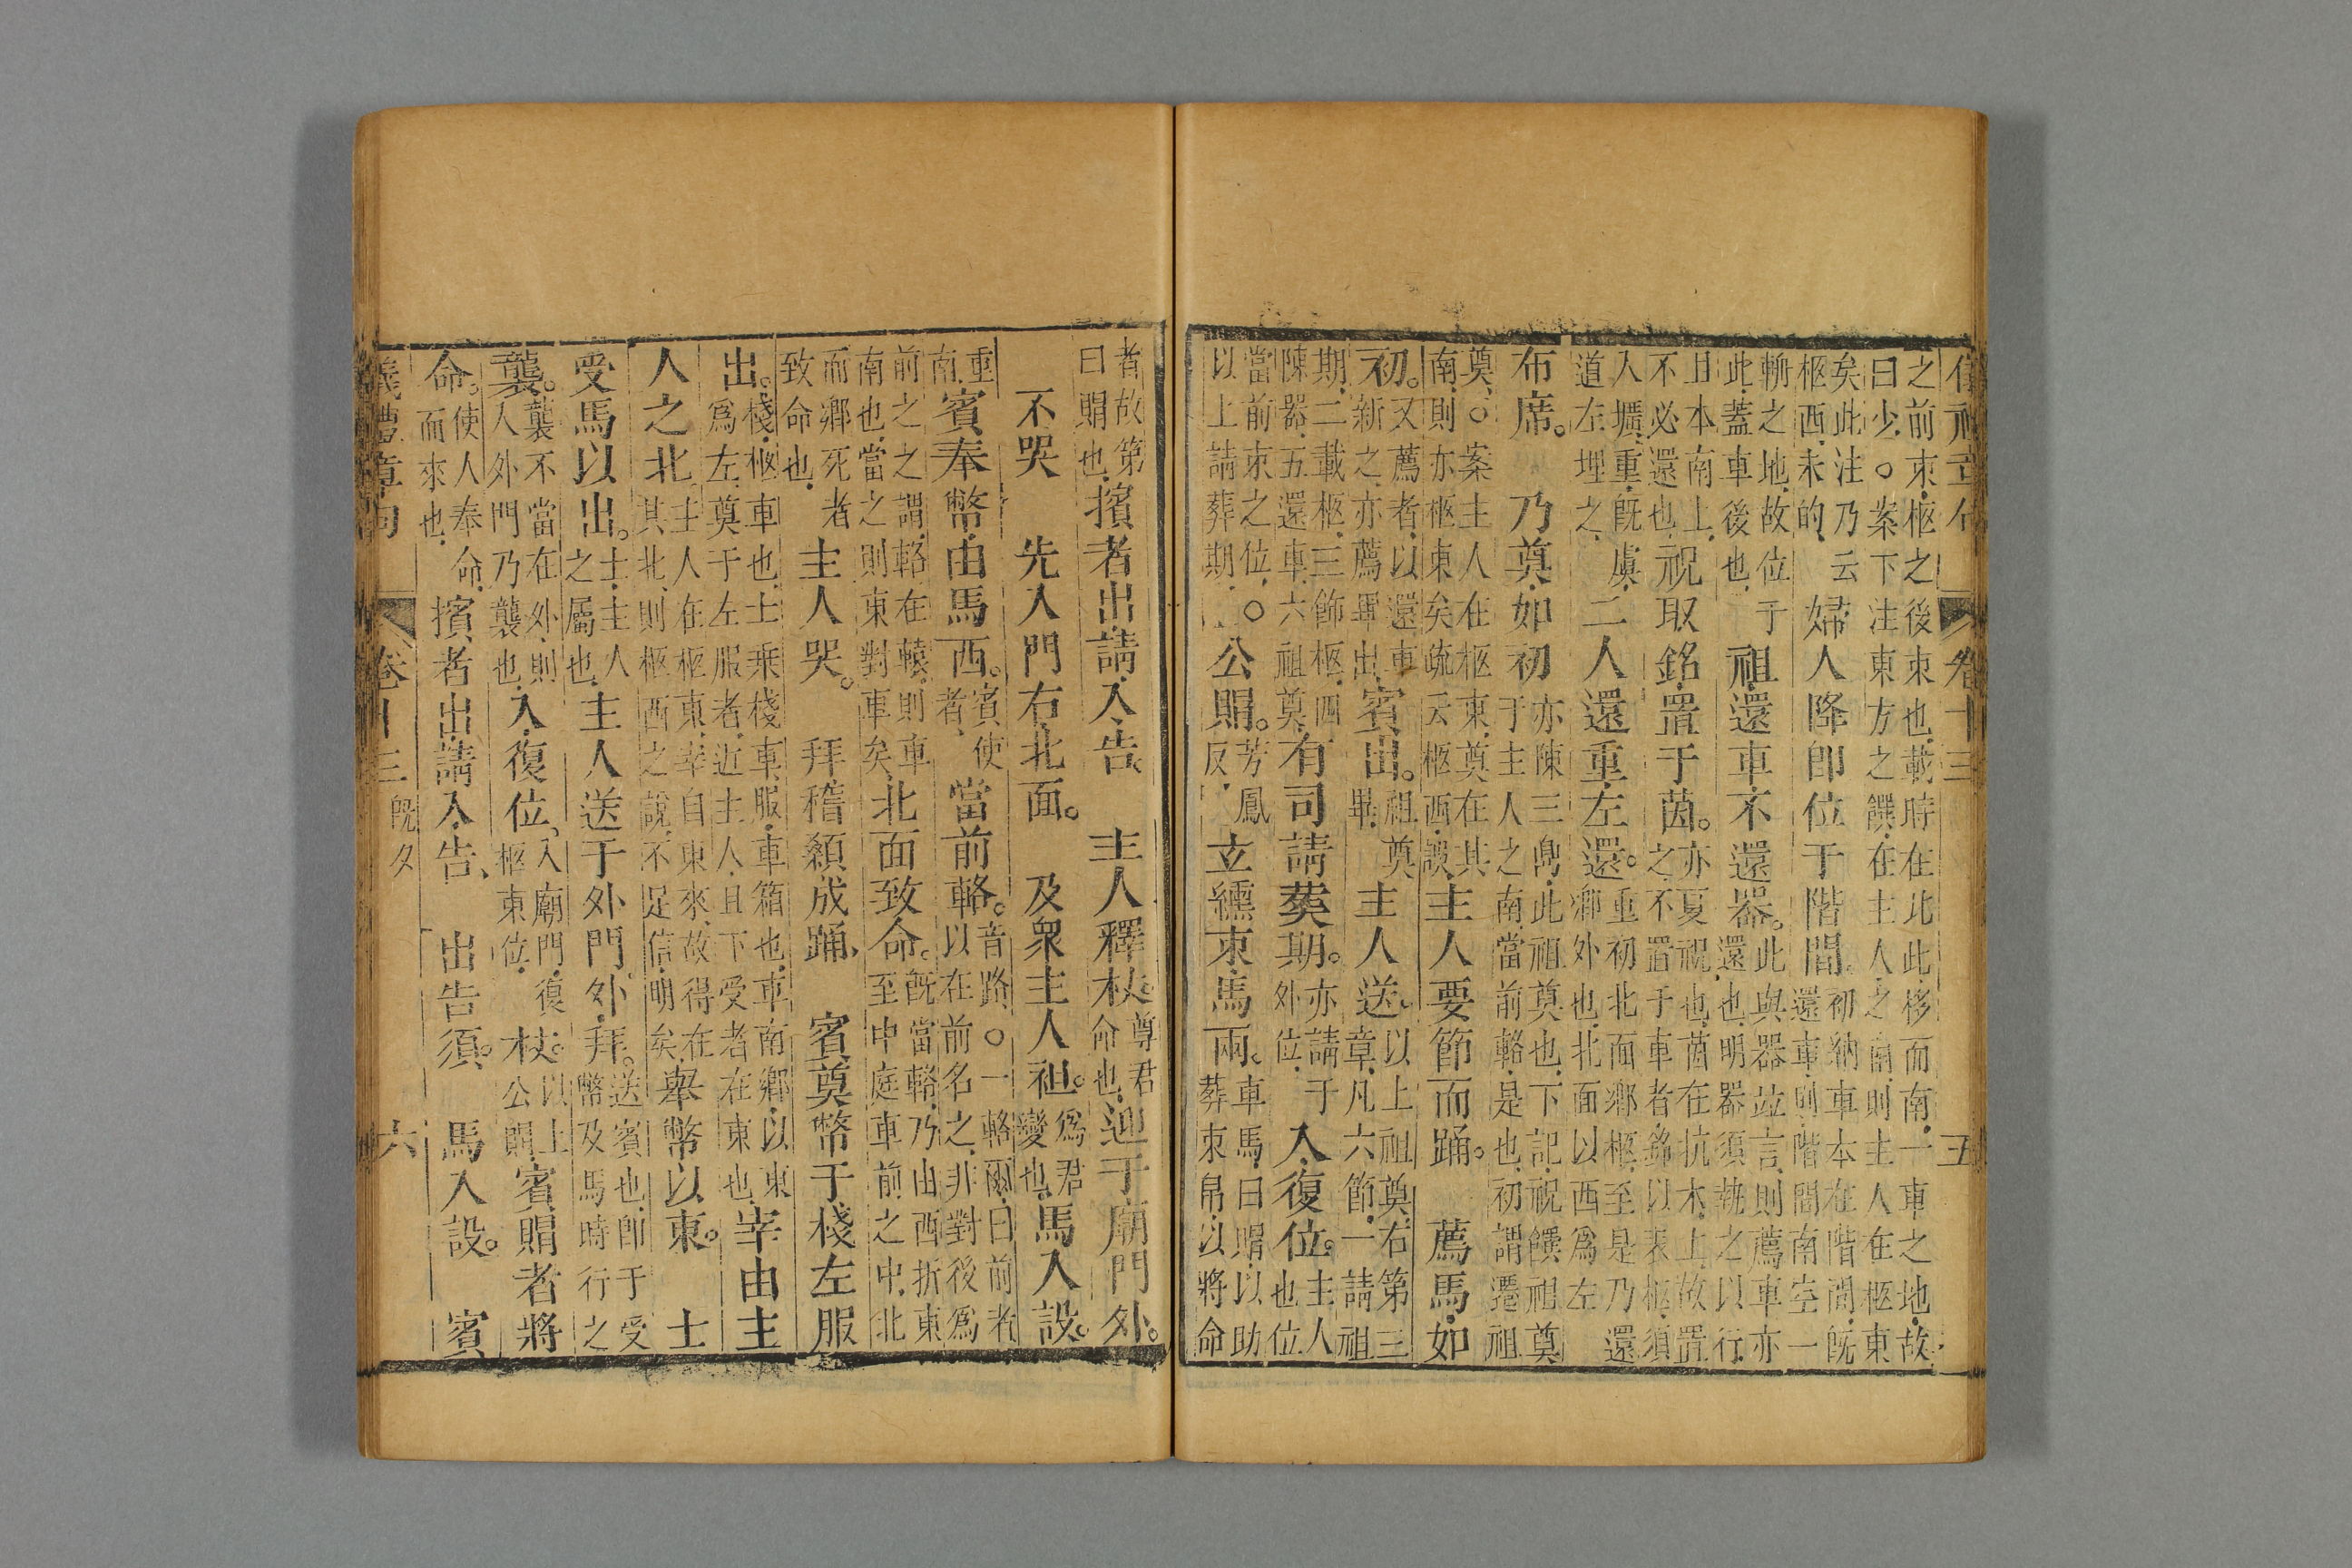 儀禮章句 卷十三 五
之前束柩之後束也載時在北此移而南一車之地故
曰少○案下注東方之饌在主人之南則主人在柩東
矣此注乃云
柩西未的
婦人降即位于階間。
初納車本在階間既
還車則階間南空一
輈之地故位于
此蓋車後也
祖還車不還器。
此與器竝言則薦車亦
還也明器須執之以行
且本南上
不必還也
祝取銘置于茵。
亦夏祝也茵在抗木上故置
之不置于車者銘以表柩須
人壙重既虞
道左埋之
二人還重左還。
重初北面鄉柩至是乃還
鄉外也北面以西爲左
布席。 乃奠如初
亦陳三鼎此祖奠也下記祝饌祖奠
于主人之南當前輅是也初謂遷祖
奠○案主人在柩東奠在其
南則亦柩東矣疏云柩西誤
主人要節而踊。 薦馬如
初。
又薦者以還車
新之亦薦畢出
賓出。
祖奠
畢
主人送。
以上祖奠右第三
章凡六節一請祖
期二載柩三飾柩四
陳器五還車六祖奠
有司請葬期。
亦請于
外位
入復位。
主人
也位
當前束之位○
以上請葬期
公賵。
芳鳳
反
玄纁束馬兩。
車馬曰賵以助
葬束帛以將命
者故第
曰賵也
擯者出請入告 主人釋杖
尊君
命也
迎于廟門外。
不哭 先入門右北面。 及衆主人袒。
爲君
變也
馬入設。
重
南
賓奉幣由馬西。
賓使
者
當前輅。
音路○一輅兩曰前者
以在前名之非對後爲
前之之謂輅在轅則車
南也當之則東對車矣
北面致命。
既當輅乃由西折東
至中庭車前之中北
而鄉死者
致命也
主人哭。 拜稽顙成踊 賓奠幣于棧左服
出。
棧柩車也士乘棧車服車箱也車南鄉以東
爲左奠于左服者近主人且下受者在東也
宰由主
人之北
主人在柩東宰自東來故得在
其北則柩西之說不足信明矣
舉幣以東。 士
受馬以出。
士主人
之屬也
主人送于外門外拜。
送賓也即于受
幣及馬時行之
襲。
襲不當在外則
人外門乃襲也
入復位
入廟門復
柩東位
杖。
以上
公賵
賓賵者將
命。
使人奉命
而來也
擯者出請入告 出告須。 馬入設。 賓
儀禮章句 卷十三 既夕 六